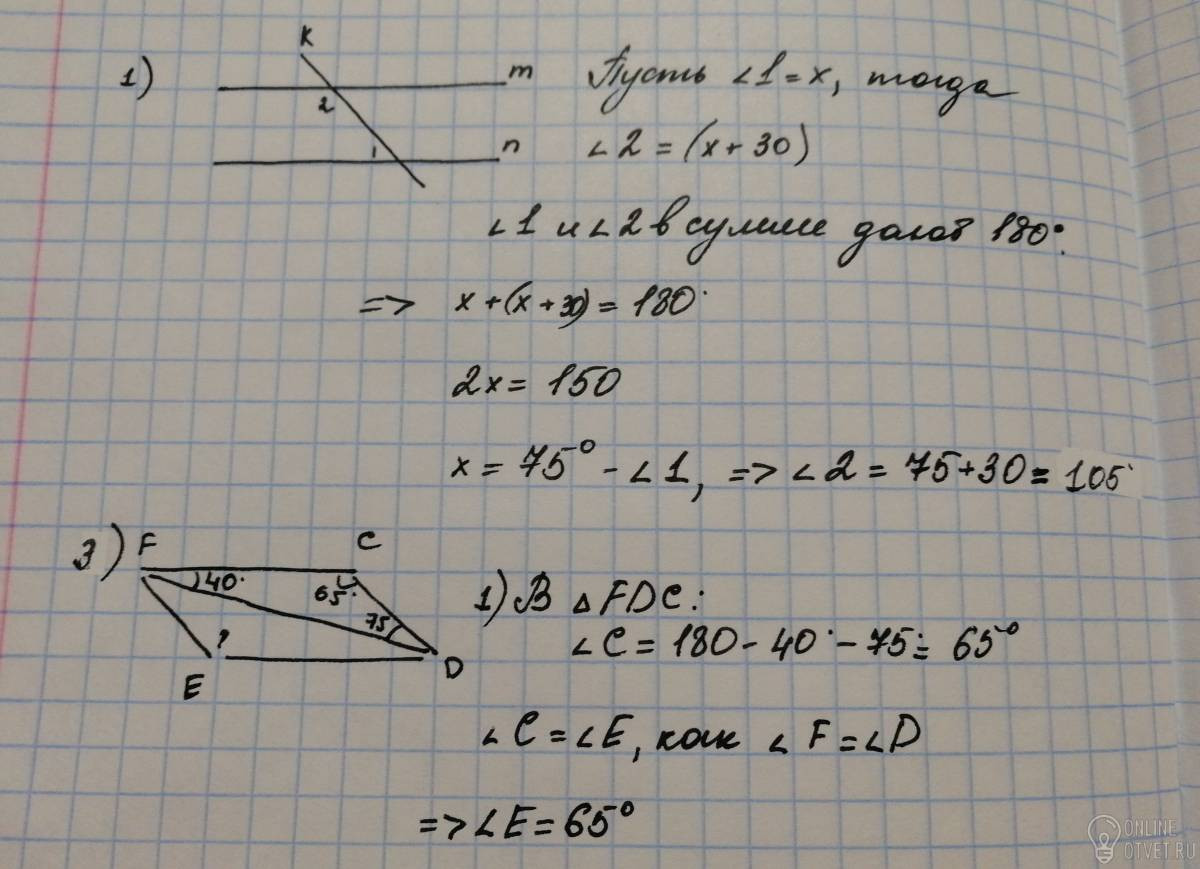 1)
K
m
2
1
n
Пусть ∠1 = x, тогда
∠2 = (x + 30)
∠1 и ∠2 в сумме дают 180°.
=> x + (x + 30) = 180°
2x = 150
x = 75° - ∠1, => ∠2 = 75 + 30 = 105°
3)
F
C
40°
65°
75
?
E
D
1) В △FDC:
∠C = 180 - 40° - 75° = 65°
∠C = ∠E, как ∠F = ∠D
=> ∠E = 65°
ONLINE
OTVET.RU